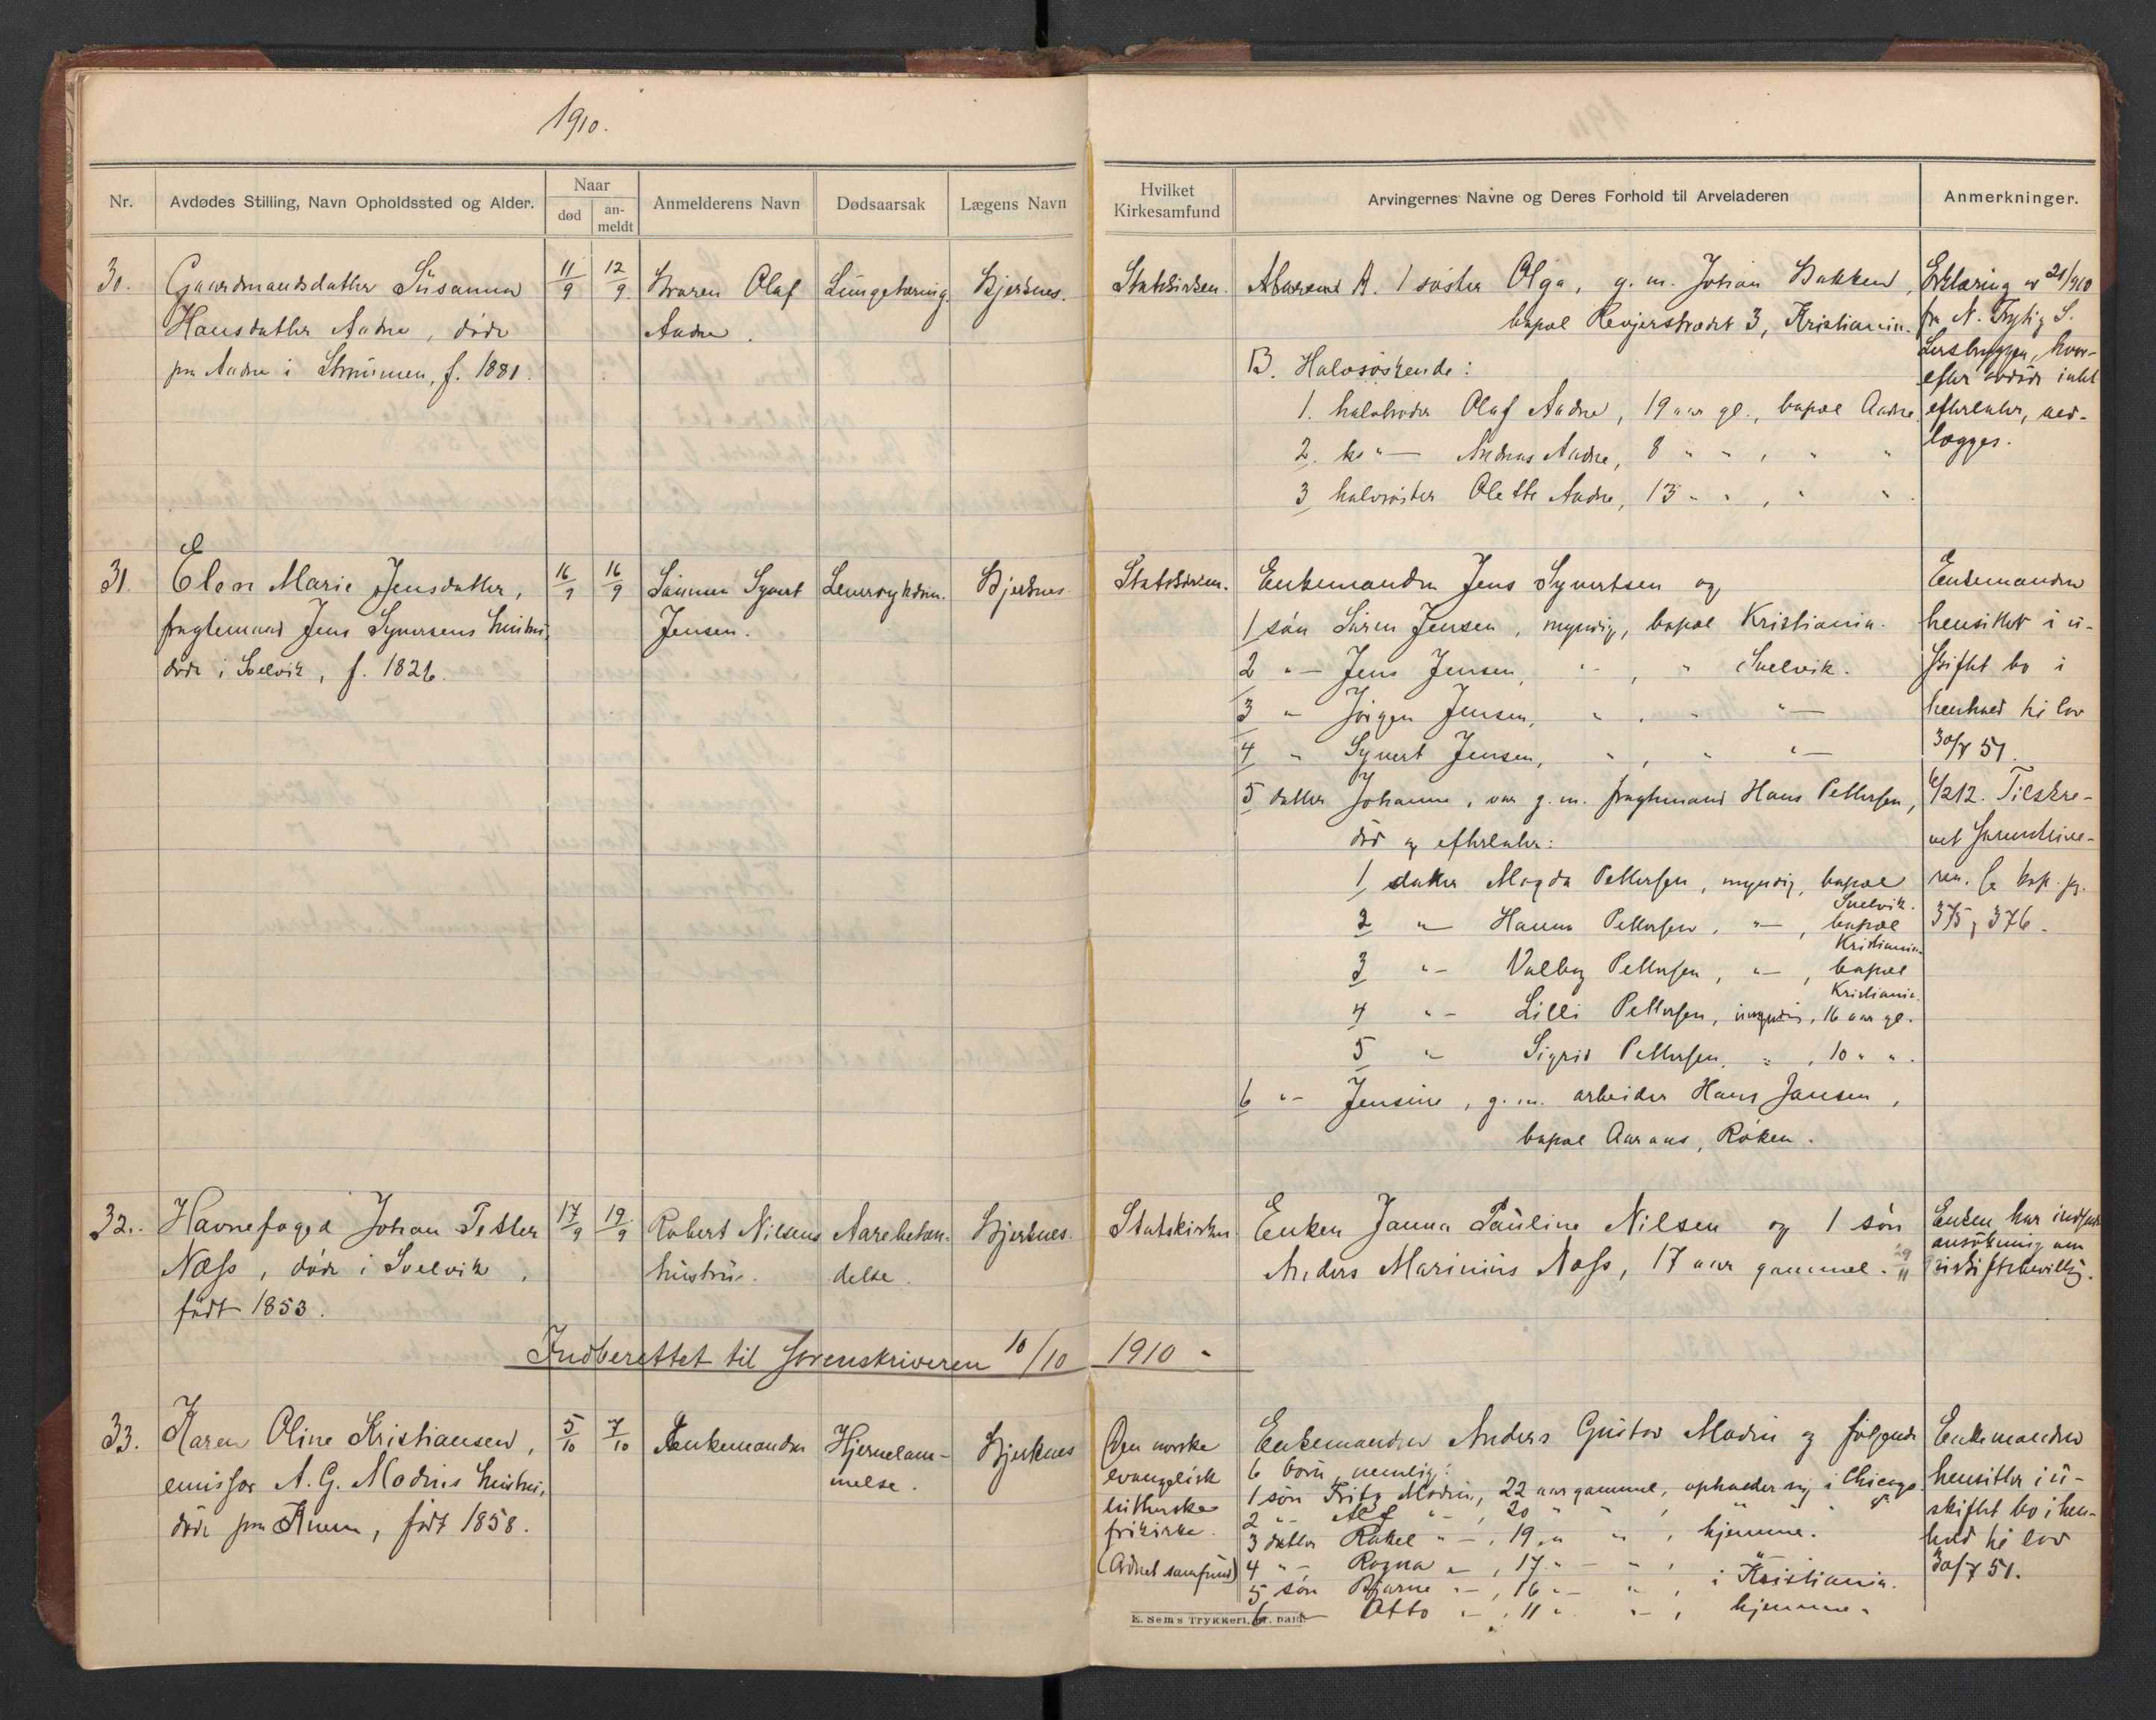 1910.
Nr.
Avdødes Stilling, Navn Opholdssted og Alder.
Naar
død
an-
meldt
Anmelderens Navn
Dødsaarsak
Lægens Navn
Hvilket
Kirkesamfund
Arvingernes Navne og Deres Forhold til Arveladeren
Anmerkninger.
30.
Gaardmandsdatter Susanna
Hansdatter Aadne, døde
paa Aadne i Strømmen, f. 1881.
11/9
12/9
Broren Olaf
Aadne.
Lungetæring.
Bjerknes.
Statskirken.
A. 1 søster Olga, g. m. Johan Bakken,
bopæl 3, Kristiania.
B. Halvsøskende:
1. halvbroder Olaf Aadne, 19 aar gl., bopæl Aadne.
2. do " — Andreas Aadne, 8 " " , " "
3 halvsøster Olette Aadne, 13 " " , " " .
Erklæring av 21/9 10
fra N.
hvor-
efter avdøde intet
efterlater, ved-
lægges.
31.
Elen Marie Jensdatter,
fragtemand Jens Syversens hustru,
døde i Svelvik, f. 1826.
16/9
16/9
Sønnen Syvert
Jensen.
Leversykdom.
Bjerknes.
Statskirken.
Enkemanden Jens Syvertsen og
1 søn Søren Jensen, myndig, bopæl Kristiania.
2 " — Jens Jensen, " , " Svelvik.
3 " Jørgen Jensen, " , " " —
4 " Syvert Jensen, " , " " —
5 datter Johanne, var g. m. fragtemand Hans Pettersen,
død og efterlater:
1 datter Magda Pettersen, myndig, bopæl
Svelvik.
2 " Hanna Pettersen, " — , bopæl
Kristiania.
3 " — Valborg Pettersen, " — , bopæl
Kristiania.
4 " — Lilli Pettersen, umyndig, 16 aar gl.
5 " Sigrid Pettersen, " , 10 " " .
6 " — Jensine, g. m. arbeider Hans Jansen,
bopæl Aaraas, Røken.
Enkemanden
hensitter i u-
skiftet bo i
henhold til lov
30/7 51.
6/2 12. Tilskre-
vet Sorenskrive-
ren. Se kop. pg.
375, 376.
32.
Havnefoged Johan Petter
Næss, døde i Svelvik,
født 1853.
17/9
19/9
Robert Nilsens
hustru.
Aarebetæn-
delse.
Bjerknes.
Statskirken
Enken Janna Pauline Nilsen og 1 søn
Anders Marinius Næss, 17 aar gammel.
Enken har
ansøkning om
Indberettet til Sorenskriveren 10/10 1910.
33.
Karen Oline Kristiansen,
emissær A. G. Modins hustru,
døde paa Knem, født 1858.
5/10
7/10
Enkemanden
Hjernelam-
melse.
Bjerknes
Den norske
evangelisk
lutherske
frikirke.
Enkemanden Anders Gustav Modin og følgende
6 børn, nemlig:
1 søn Fritz Modin, 22 aar gammel, opholder sig i Chicago.
2 " — Alf " — , 20 " " , " "
3 datter Rakel " — , 19 " " , hjemme.
4 " — Ragna " — , 17 " — " , " —
5 søn Bjarne " — , 16 " — " , i Kristiania.
6 " — Otto " — , 11 " " — , hjemme.
Enkemanden
hensitter i u-
skiftet bo i hen-
hold til lov
30/7 51.
E. Sems Trykkeri, Fr.hald.